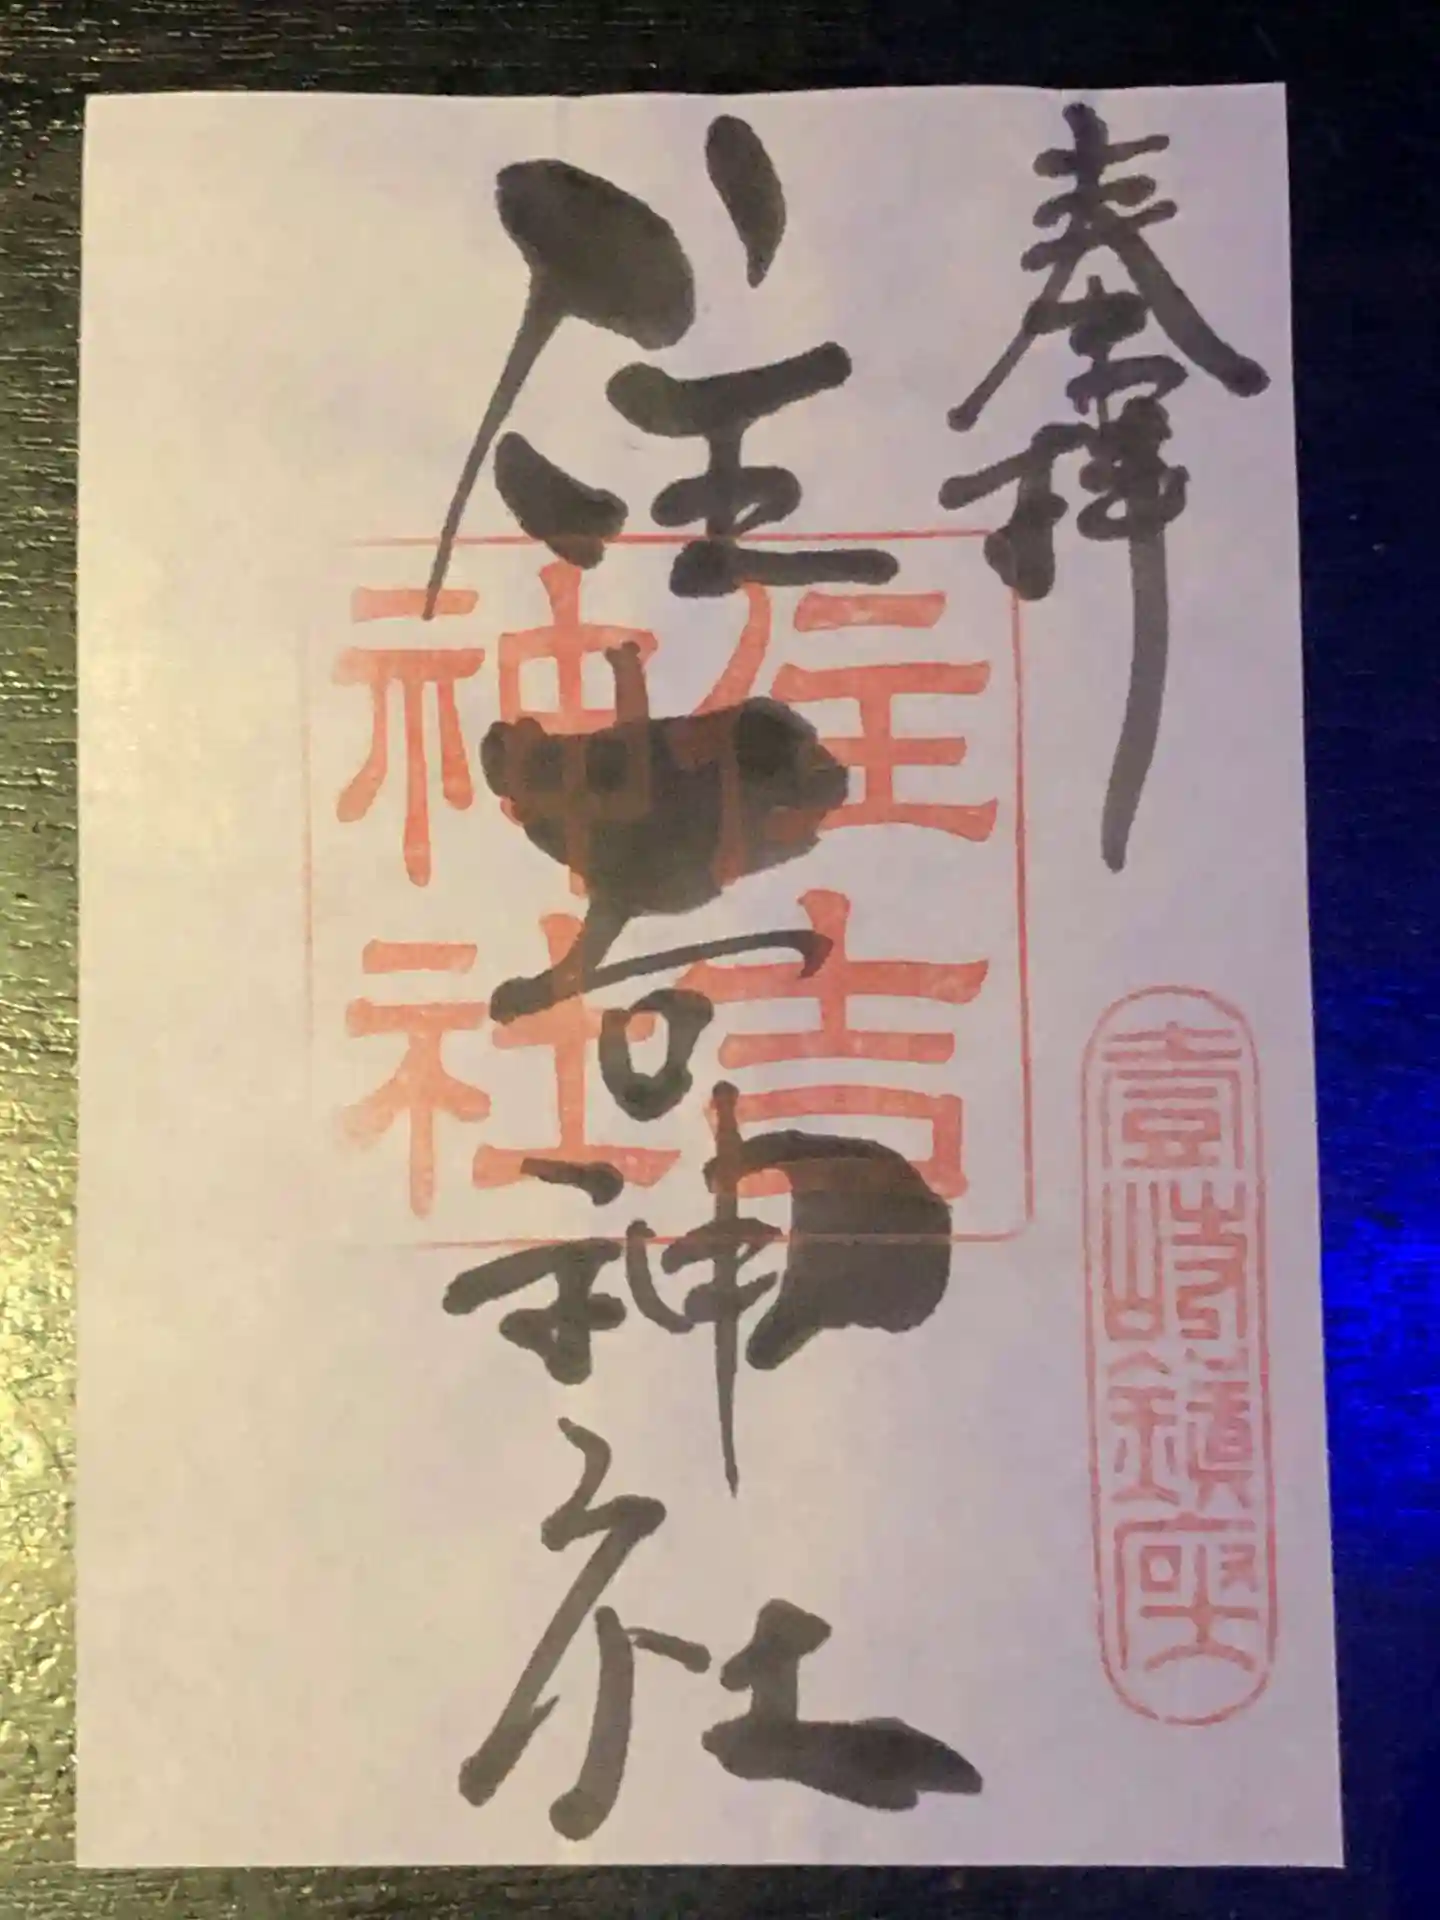 奉拝
壹岐鎮座
住吉神社
住吉
神社